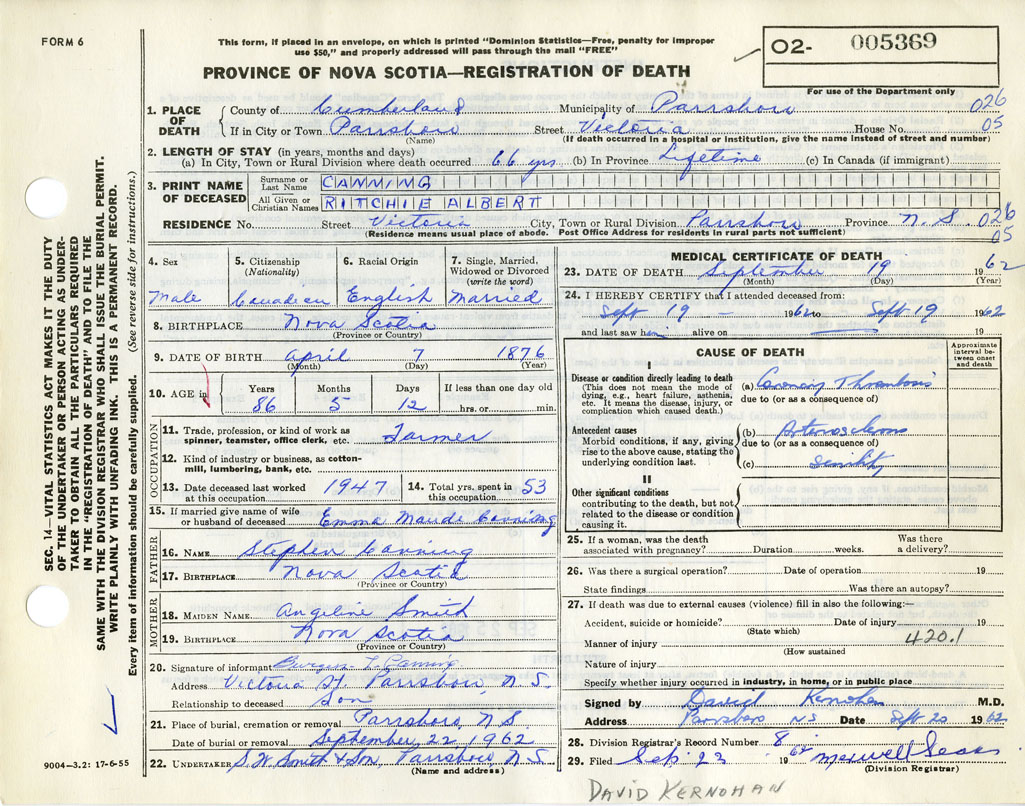 FORM 6
This form, if placed in an envelope, on which is printed "Dominion Statistics—Free, penalty for improper
use $50," and properly addressed will pass through the mail "FREE"
O2- 005369
For use of the Department only
PROVINCE OF NOVA SCOTIA—REGISTRATION OF DEATH
SEC. 14—VITAL STATISTICS ACT MAKES IT THE DUTY
OF THE UNDERTAKER OR PERSON ACTING AS UNDER-
TAKER TO OBTAIN ALL THE PARTICULARS REQUIRED
IN THE "REGISTRATION OF DEATH" AND TO FILE THE
SAME WITH THE DIVISION REGISTRAR WHO SHALL ISSUE THE BURIAL PERMIT.
WRITE PLAINLY WITH UNFADING INK. THIS IS A PERMANENT RECORD.
Every item of information should be carefully supplied. (See reverse side for instructions.)
1. PLACE OF DEATH
County of Cumberland Municipality of Parrsboro 026
If in City or Town Parrsboro Street Victoria House No. 05
(Name) (If death occurred in a hospital or institution, give the name instead of street and number)
2. LENGTH OF STAY (in years, months and days)
(a) In City, Town or Rural Division where death occurred 66 yrs. (b) In Province Lifetime (c) In Canada (if immigrant)
3. PRINT NAME OF DECEASED
Surname or Last Name CANNING
All Given or Christian Names RITCHIE ALBERT
RESIDENCE No. Street Victoria City, Town or Rural Division Parrsboro Province N.S. 026
(Residence means usual place of abode. Post Office Address for residents in rural parts not sufficient) 05
4. Sex Male
5. Citizenship (Nationality) Canadian
6. Racial Origin English
7. Single, Married, Widowed or Divorced (write the word) Married
8. BIRTHPLACE Nova Scotia
(Province or Country)
9. DATE OF BIRTH April 7 1876
(Month) (Day) (Year)
10. AGE in Years 86 Months 5 Days 12 If less than one day old hrs. or min.
OCCUPATION
11. Trade, profession, or kind of work as
spinner, teamster, office clerk, etc. Farmer
12. Kind of industry or business, as cotton-
mill, lumbering, bank, etc.
13. Date deceased last worked
at this occupation 1947
14. Total yrs. spent in
this occupation 53
15. If married give name of wife
or husband of deceased Emma Maude Canning
FATHER
16. NAME Stephen Canning
17. BIRTHPLACE Nova Scotia
(Province or Country)
MOTHER
18. MAIDEN NAME Angeline Smith
19. BIRTHPLACE Nova Scotia
(Province or Country)
20. Signature of informant Burgess L. Canning
Address Victoria St Parrsboro, N.S.
Relationship to deceased Son
21. Place of burial, cremation or removal Parrsboro, N S
Date of burial or removal September 22, 1962
22. UNDERTAKER S. W. Smith & Son, Parrsboro, N.S.
(Name and address)
9004-3.2: 17-6-55
MEDICAL CERTIFICATE OF DEATH
23. DATE OF DEATH September 19 1962
(Month) (Day) (Year)
24. I HEREBY CERTIFY that I attended deceased from:
Sept 19 - 1962 to Sept 19 1962
and last saw him alive on 19
CAUSE OF DEATH
Approximate interval between onset and death
I
Disease or condition directly leading to death
(This does not mean the mode of
dying, e.g., heart failure, asthenia,
etc. It means the disease, injury, or
complication which caused death.)
(a) Coronary Thrombosis
due to (or as a consequence of)
Antecedent causes
Morbid conditions, if any, giving
rise to the above cause, stating the
underlying condition last.
(b) Arteriosclerosis
due to (or as a consequence of)
(c) Senility
II
Other significant conditions
contributing to the death, but not
related to the disease or condition
causing it.
25. If a woman, was the death Was there
associated with pregnancy? Duration weeks. a delivery?
26. Was there a surgical operation? Date of operation 19
State findings Was there an autopsy?
27. If death was due to external causes (violence) fill in also the following:—
Accident, suicide or homicide? Date of injury 19
(State which)
Manner of injury 420.1
(How sustained
Nature of injury
Specify whether injury occurred in industry, in home, or in public place
Signed by David Kernohan M.D.
Address Parrsboro NS Date Sept 20 1962
28. Division Registrar's Record Number 8
29. Filed Sep. 23 1962 Maxwell
(Division Registrar)
DAVID KERNOHAN